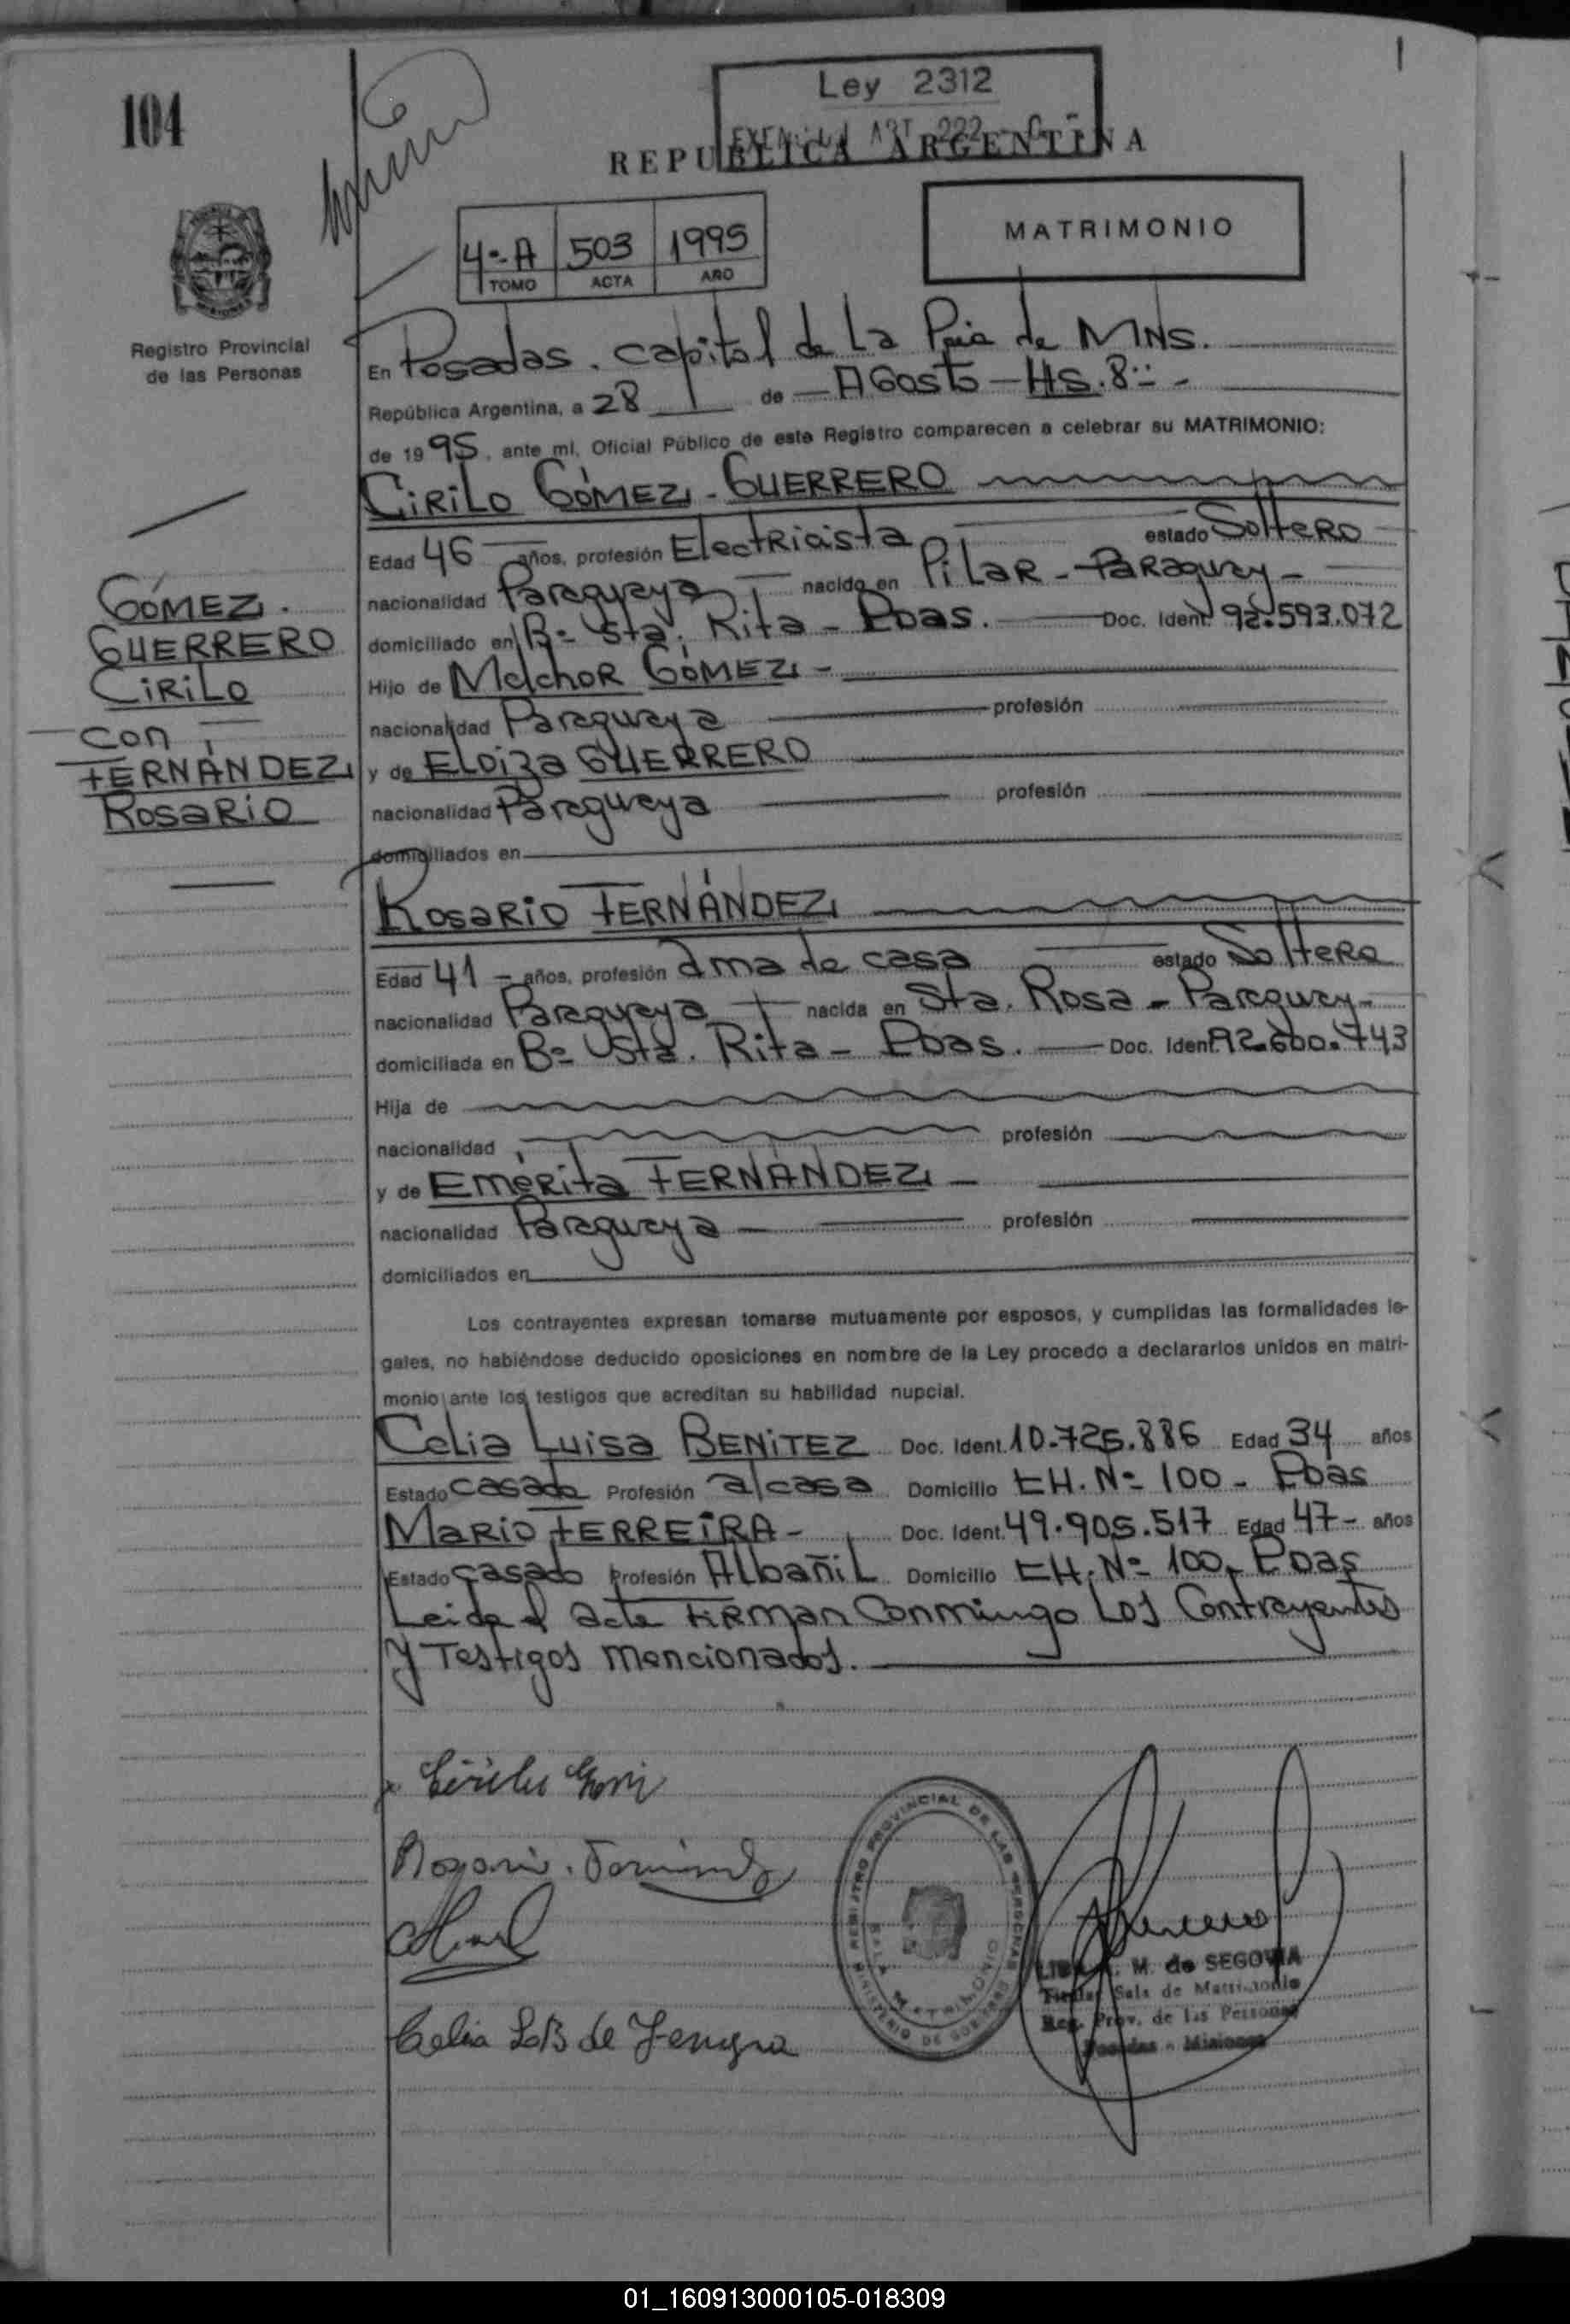 104
Ley 2312
EXENCION ART 222
REPUBLICA ARGENTINA
4º-A 503 1995
TOMO ACTA AÑO
MATRIMONIO
Registro Provincial
de las Personas
En Posadas. capital de La Pcia de MNS.
República Argentina, a 28 de AGosto - HS. 8:-
de 1995, ante mí, Oficial Público de este Registro comparecen a celebrar su MATRIMONIO:
CiRiLo GÓMEZ - GUERRERO
Edad 46 años, profesión ElectRicista estado SolteRo
nacionalidad Paraguaya nacido en PiLaR - PaRaguay -
domiciliado en Bº Sta. Rita - Pdas. Doc. Ident. 92.593.072
Hijo de MelchoR GÓMEZ -
nacionalidad Paraguaya profesión
y de ELoiza GUERRERO
nacionalidad Paraguaya profesión
domiciliados en
GÓMEZ.
GUERRERO
CiRiLo
con
FERNÁNDEZ
RosaRio
RosaRio FERNÁNDEZ
Edad 41 - años, profesión ama de casa estado SolteRa
nacionalidad Paraguaya nacida en Sta. Rosa - Paraguay -
domiciliada en Bº Sta. Rita - Pdas. Doc. Ident. 92.600.743
Hija de
nacionalidad profesión
y de EméRita FERNÁNDEZ -
nacionalidad Paraguaya profesión
domiciliados en
Los contrayentes expresan tomarse mutuamente por esposos, y cumplidas las formalidades le-
gales, no habiéndose deducido oposiciones en nombre de la Ley procedo a declararlos unidos en matri-
monio ante los testigos que acreditan su habilidad nupcial.
Celia Luisa BENiTEZ Doc. Ident. 10.725.886 Edad 34 años
Estado casada Profesión a/casa Domicilio CH. Nº 100 - Pdas
MaRio FERREiRA - Doc. Ident. 49.905.517 Edad 47 - años
Estado casado Profesión ALbañiL Domicilio CH. Nº 100, Pdas
Leida el acta FiRman Conmingo Los Contrayentes
y Testigos mencionados.
Rosario. Fernández
Celia L B de Ferreyra
REGISTRO PROVINCIAL DE LAS PERSONAS
SALA MATRIMONIO
MINISTERIO DE GOBIERNO
M. de SEGOVIA
Titular Sala de Matrimonio
Reg. Prov. de las Personas
Posadas - Misiones
01_160913000105-018309